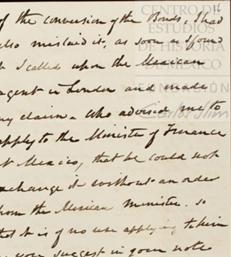 of the conversion of the Bonds, I had
also mislaid it, as soon as found
it I called upon the Mexican
agent in London and made
my claim. Who advised me to
apply to the Minister of Finance
at Mexico, that he could not
exchange it without an order
from the Mexican minister. so
that it is of no use applying to him
as you suggest in your note
CENTRO DE
ESTUDIOS
DE HISTORIA
DE MÉXICO
Carlos Slim